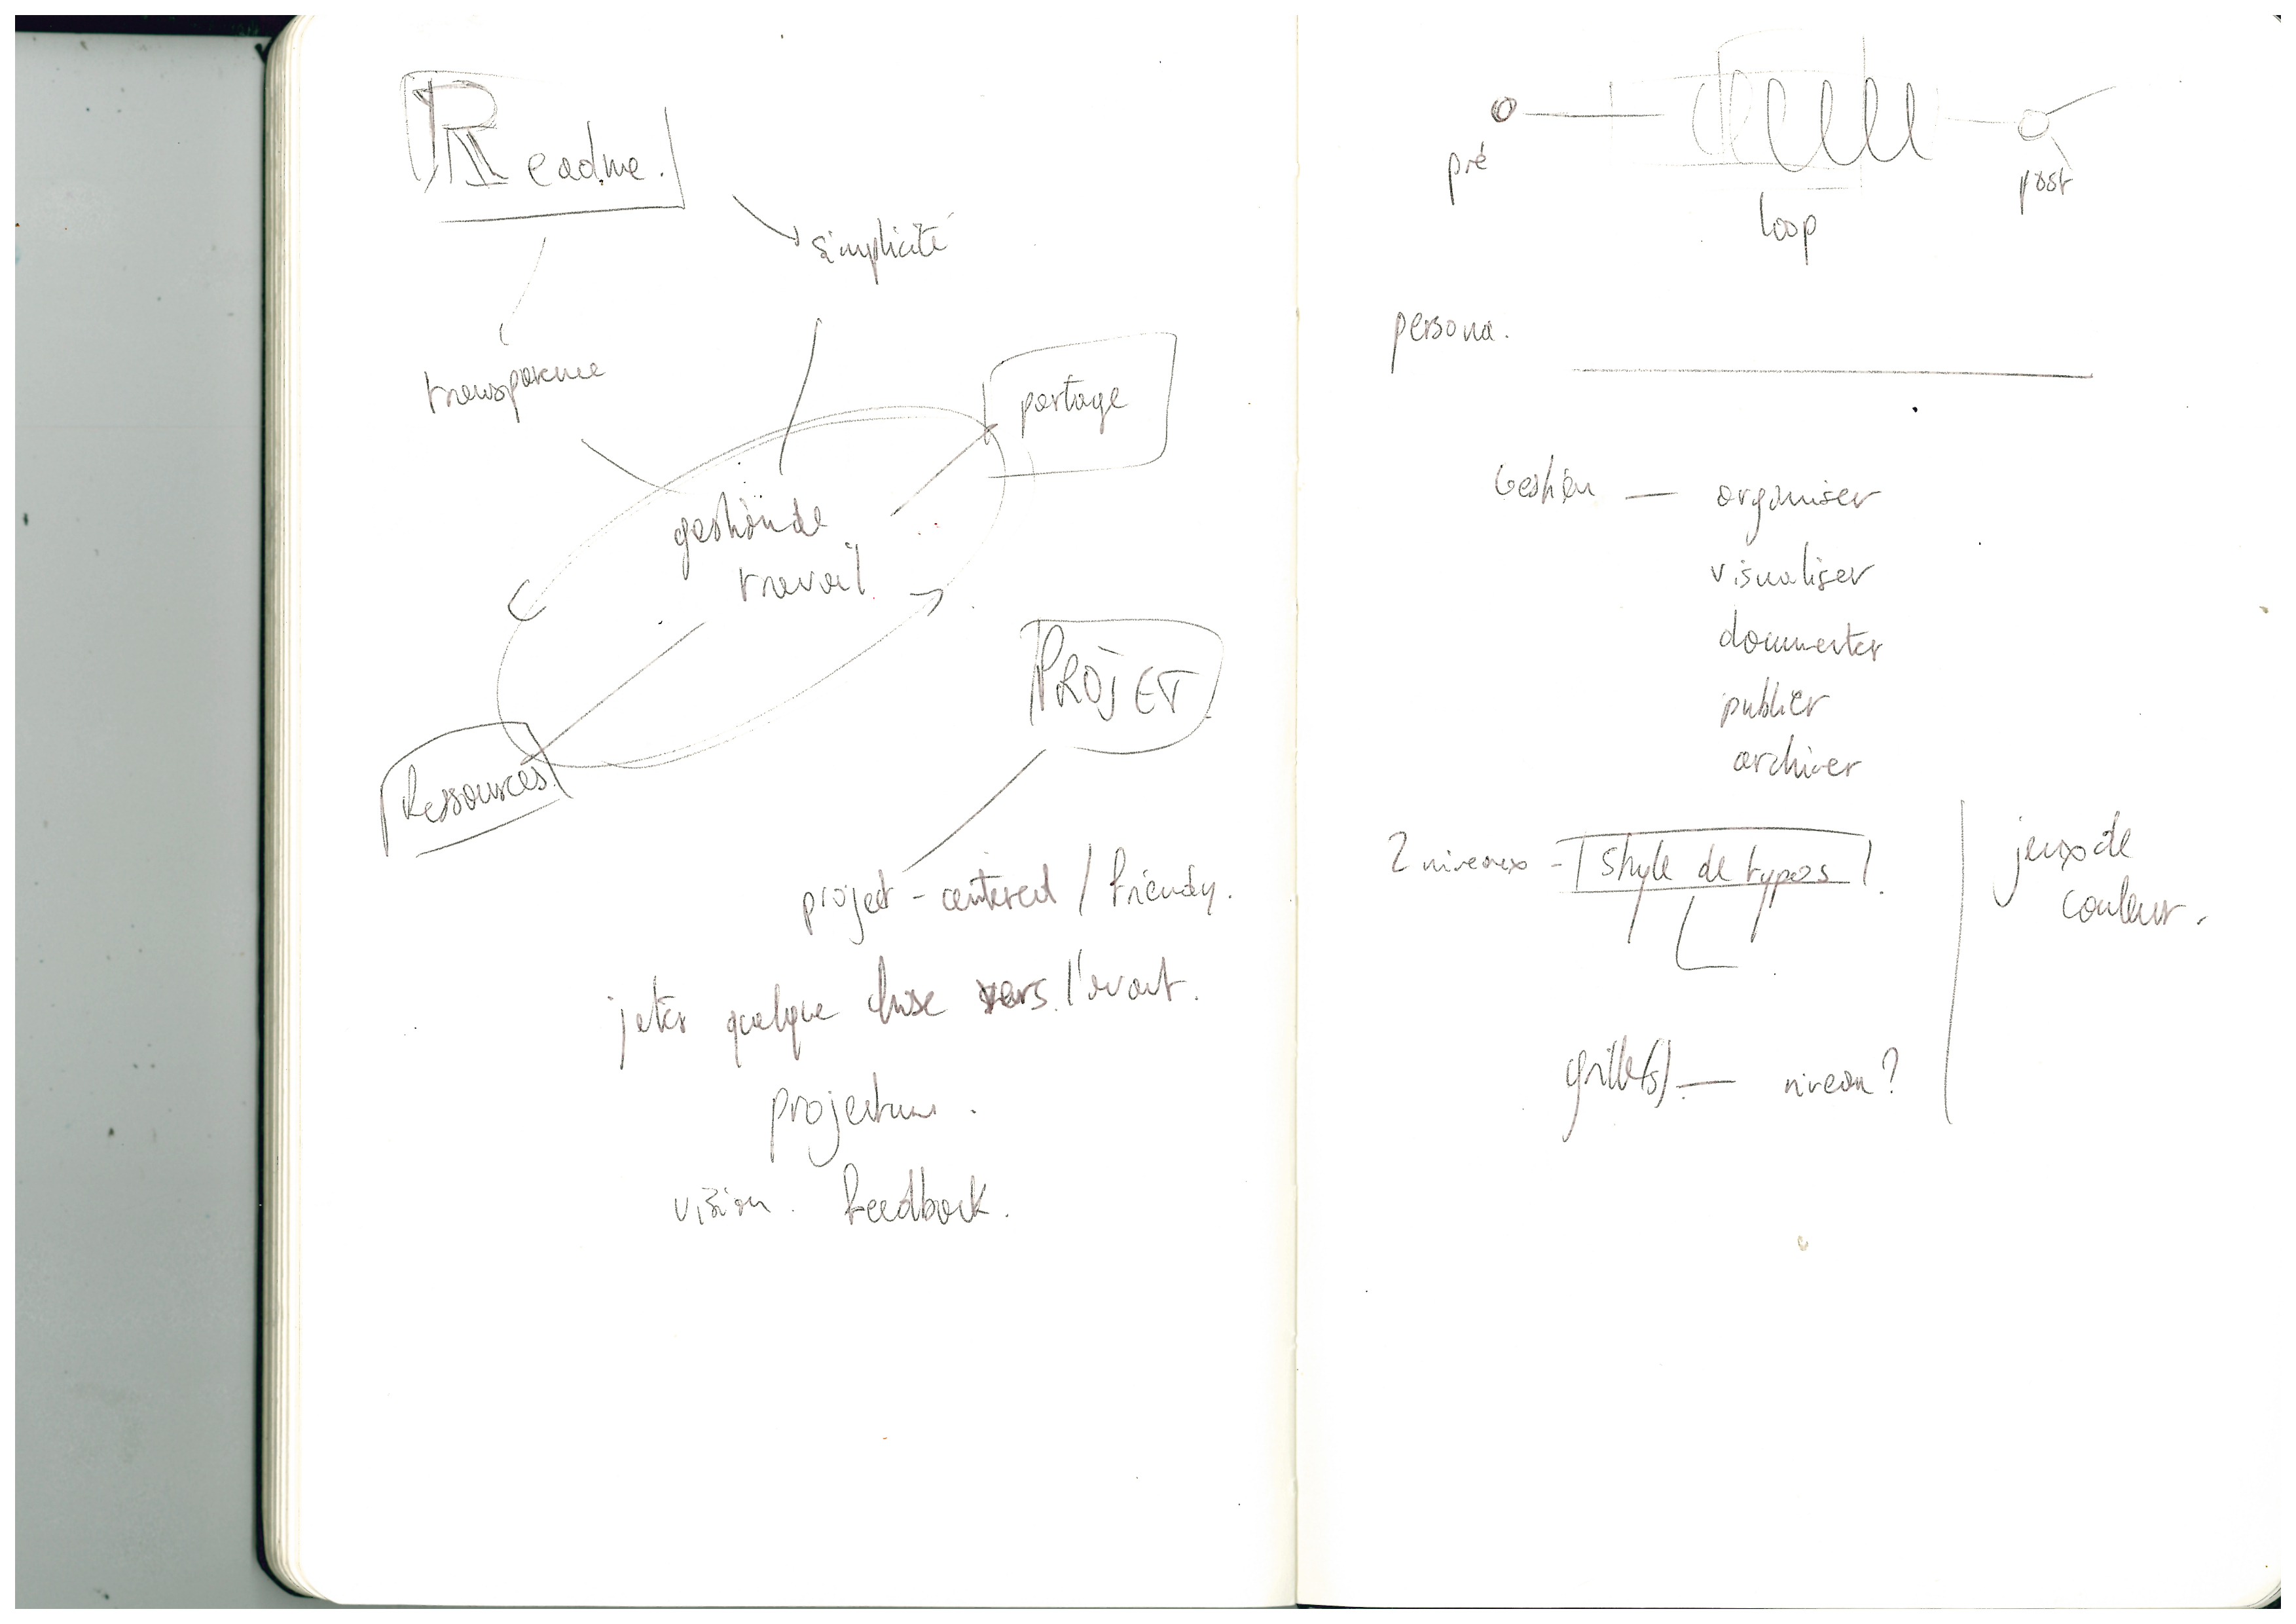 Readme.
simplicité
transparence
partage
gestion de
travail
PROJET
Ressources
project-centered / friendly.
jeter quelque chose vers l'avant.
vision. feedback.
pré
loop
post
persona.
Gestion — organiser
visualiser
documenter
publier
archiver
2 niveaux - style de typos
jeux de
couleur.
grille(s) — niveau ?